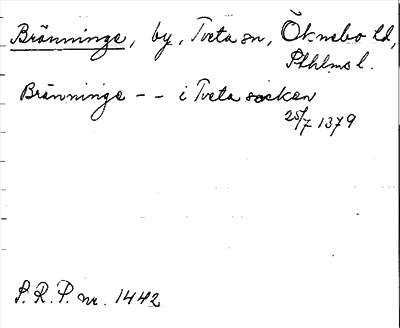 Bränninge, by, Tveta sn, Öknebo hd,
Sthlms l.
Bränninge -- i Tveta socken
25/7 1379
S.R.P. nr. 1442